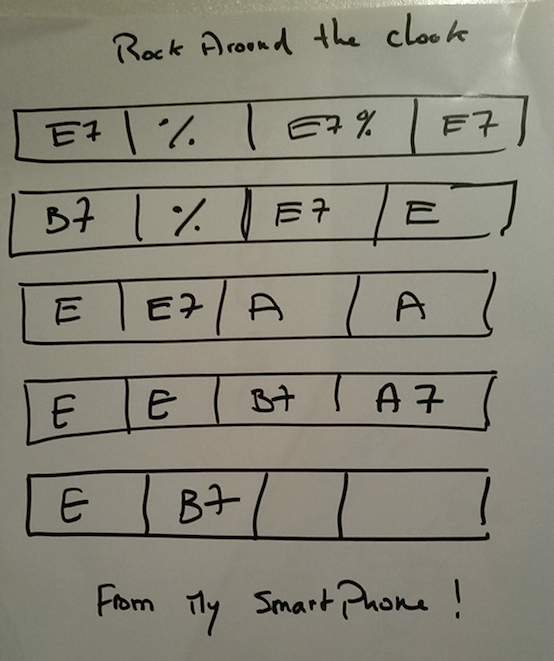 Rock Around the clock
E7 | % | E7 % | E7
B7 | % | E7 | E
E | E7 | A | A
E | E | B7 | A7
E | B7 | |
From My SmartPhone !